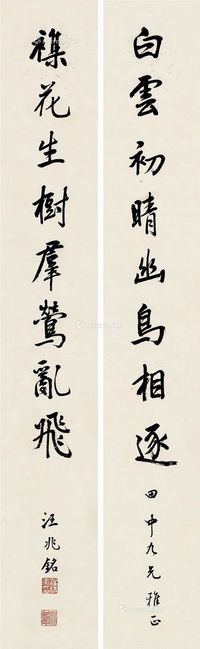 白雲初晴幽鳥相逐
田中九兄雅正
襍花生樹羣鶯亂飛
汪兆銘